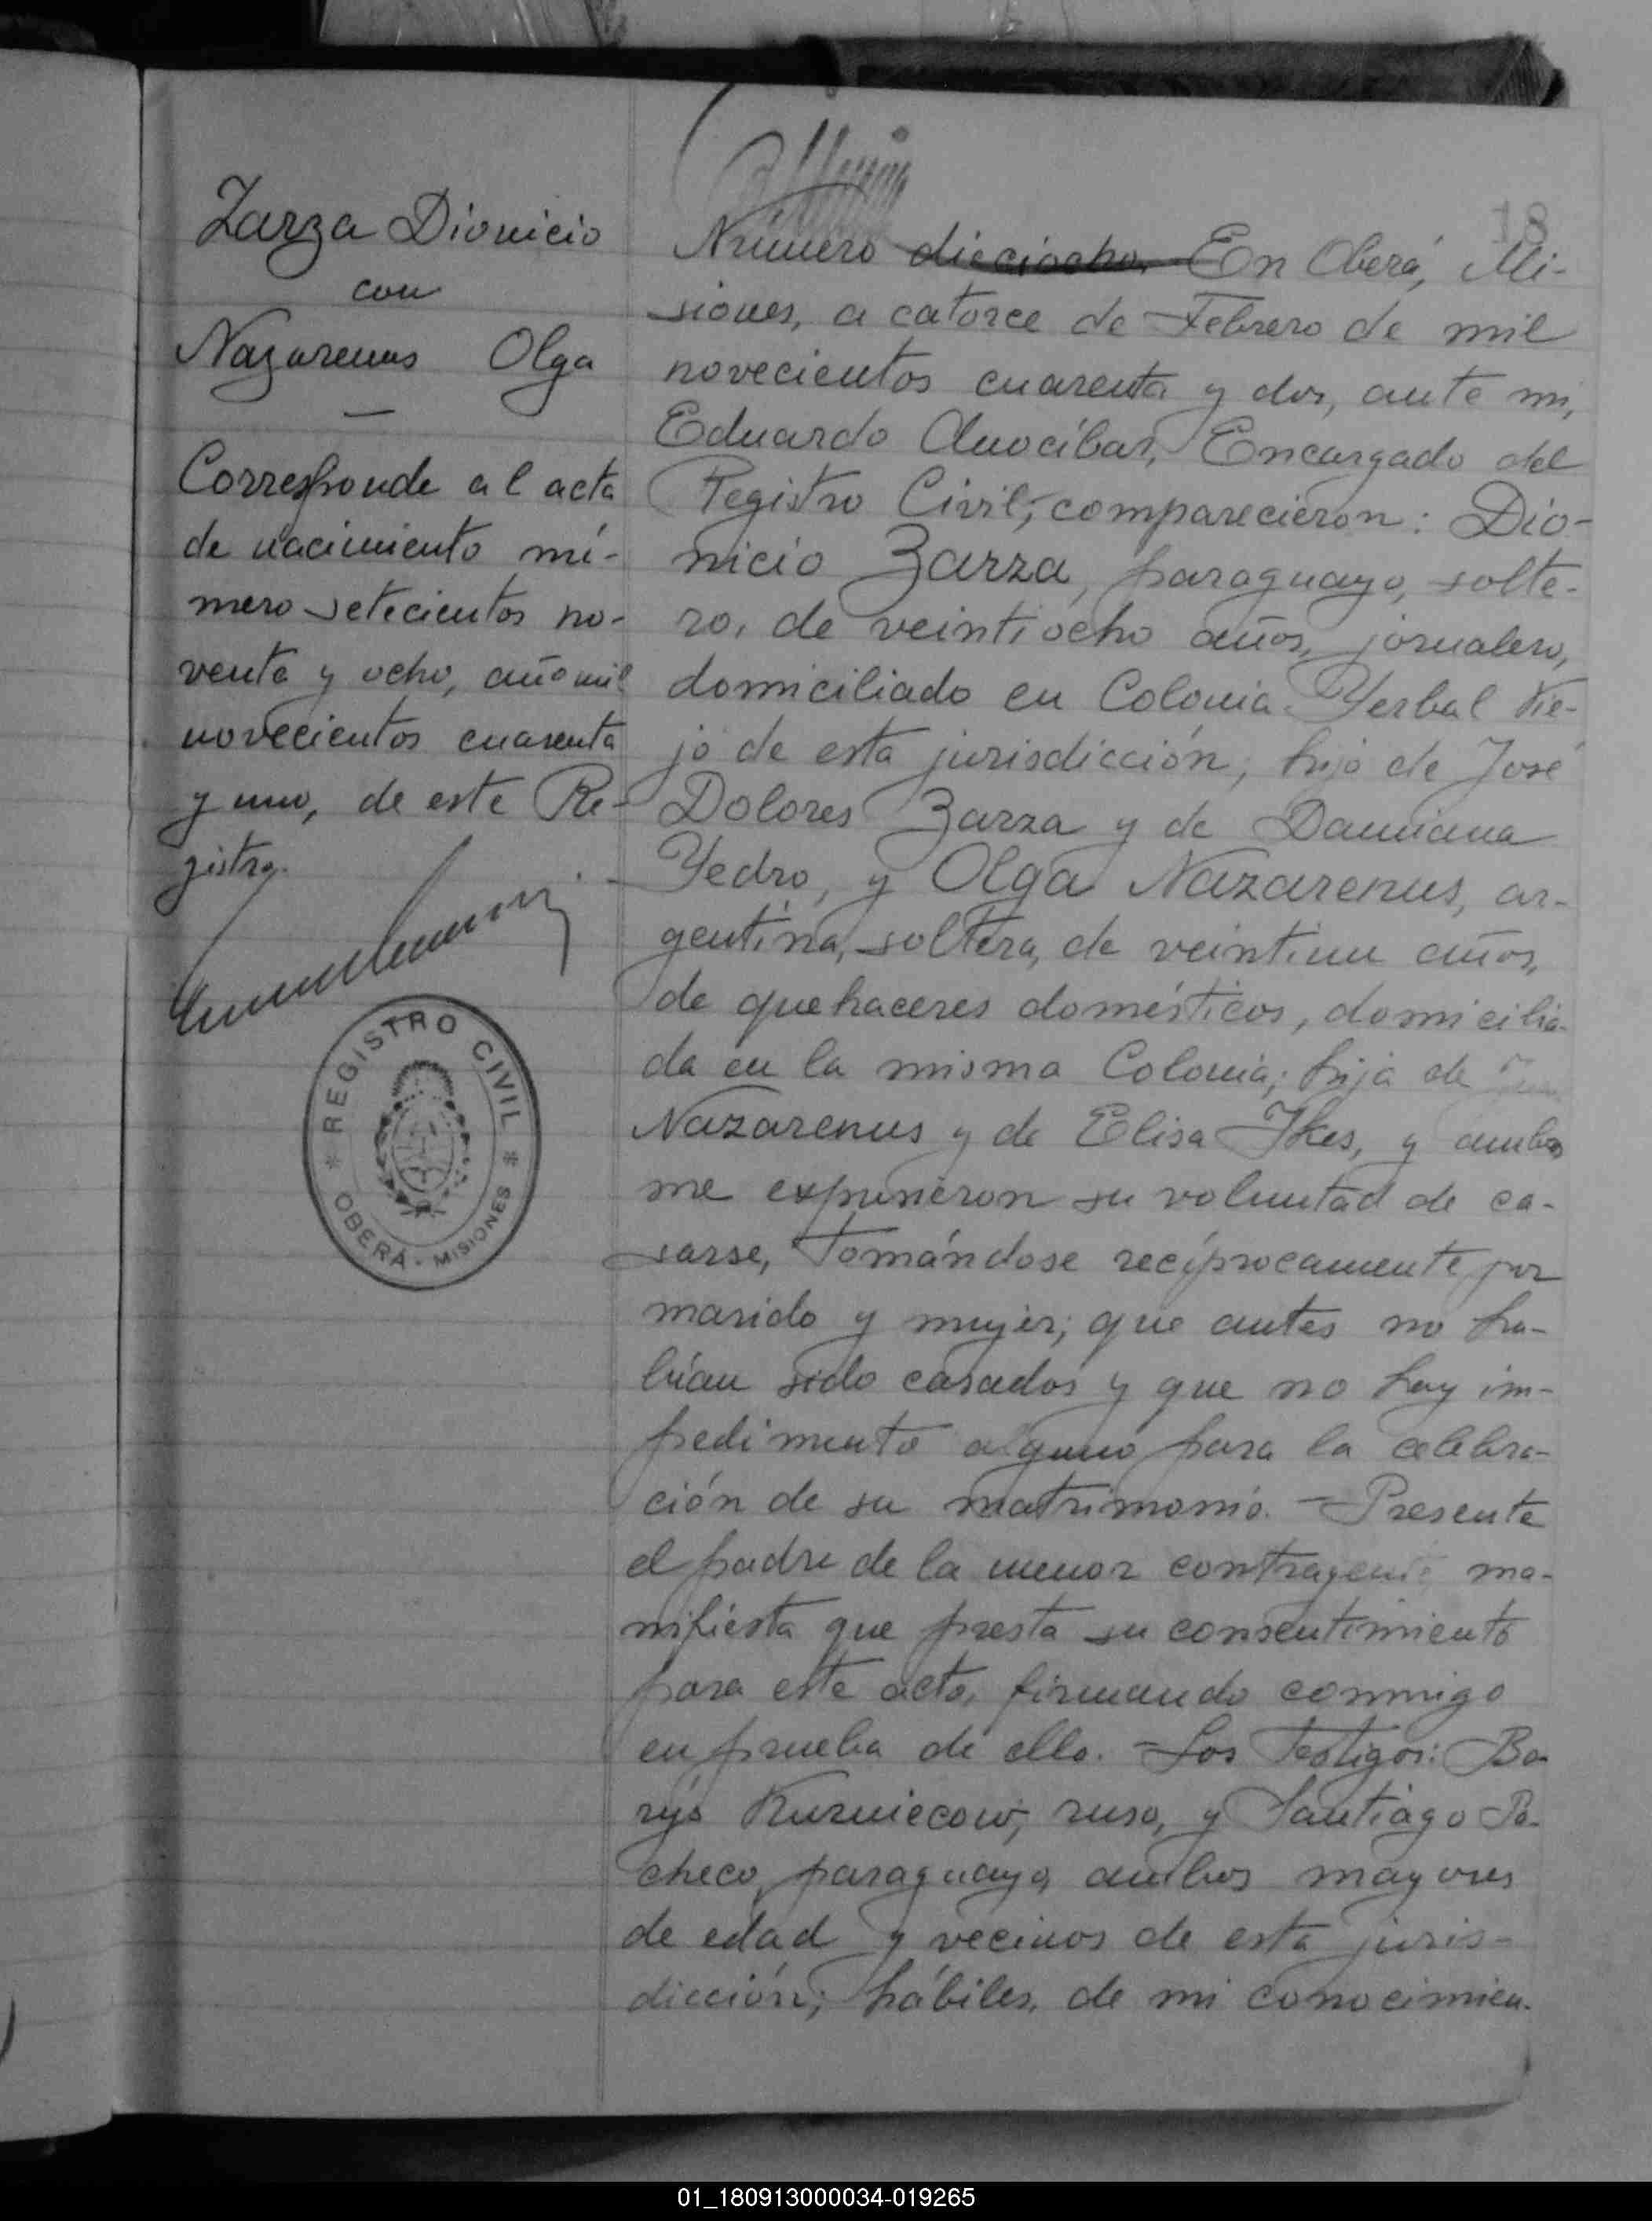 Zarza Dionicio
con
Nazarenus Olga
Corresponde al acta
de nacimiento nú-
mero setecientos no-
venta y ocho, año mil
novecientos cuarenta
y uno, de este Re-
gistro.
REGISTRO CIVIL
OBERÁ - MISIONES
18
Número dieciocho. En Oberá, Mi-
siones, a catorce de Febrero de mil
novecientos cuarenta y dos, ante mi,
Eduardo Anocíbar, Encargado del
Registro Civil, comparecieron: Dio-
nicio Zarza, paraguayo, solte-
ro, de veintiocho años, jornalero,
domiciliado en Colonia Yerbal Vie-
jo de esta jurisdicción, hijo de José
Dolores Zarza y de Damiana
Yedro, y Olga Nazarenus, ar-
gentina, soltera, de veintiun años,
de quehaceres domésticos, domicilia-
da en la misma Colonia; hija de
Nazarenus y de Elisa Ikes, y ambos
me expusieron su voluntad de ca-
sarse, tomándose recíprocamente por
marido y mujer; que antes no ha-
bían sido casados y que no hay im-
pedimento alguno para la celebra-
ción de su matrimonio. - Presente
el padre de la menor contrayente ma-
nifiesta que presta su consentimiento
para este acto, firmando conmigo
en prueba de ello. - Los Testigos: Bo-
rys Kurniecow, ruso, y Santiago Pa-
checo, paraguayo, ambos mayores
de edad y vecinos de esta juris-
dicción; hábiles, de mi conocimien-
01_180913000034-019265